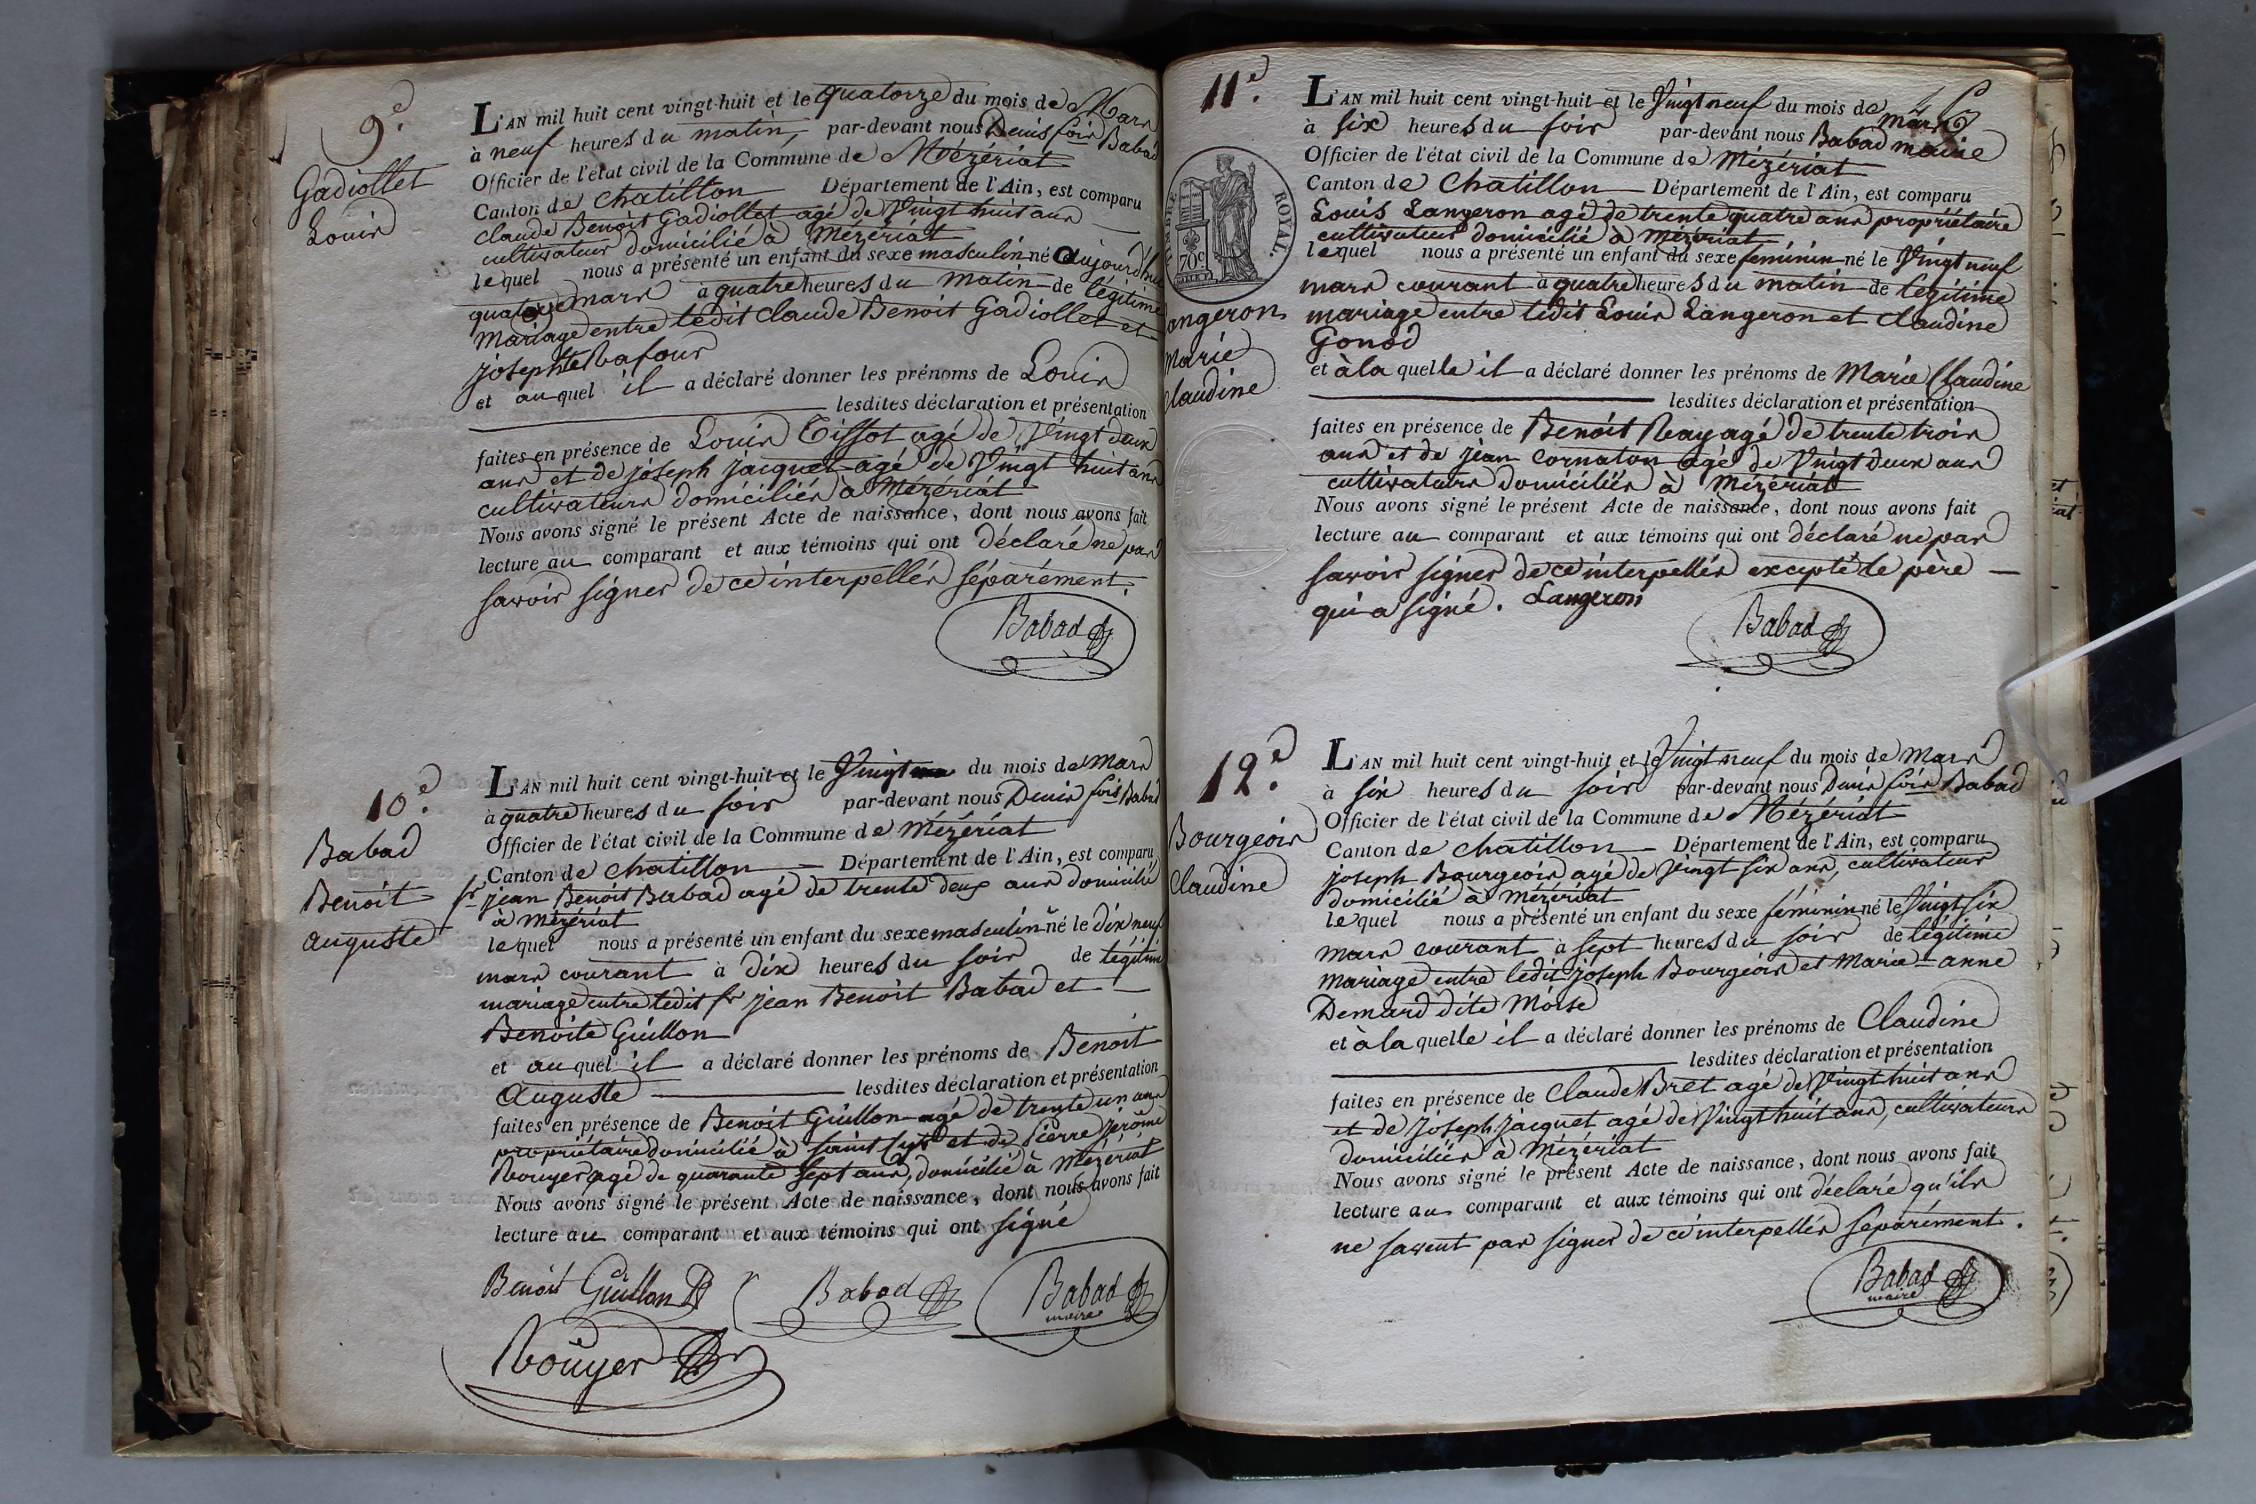 9e.
Gadiollet
Louis
L'AN mil huit cent vingt-huit et le quatorze du mois de Mars
à neuf heures du matin, par-devant nous Denis fois Babad
Officier de l'état civil de la Commune de Mézériat
Canton de chatillon Département de l'Ain, est comparu
claude Benoit Gadiollet agé de Vingt huit ans
cultivateur domicilié à Mézériat
lequel nous a présenté un enfant du sexe masculin né aujourd'hui
quatorze mars à quatre heures du matin de légitime
mariage entre ledit Claude Benoit Gadiollet et
josephte Rafour
et auquel il a déclaré donner les prénoms de Louis
lesdites déclaration et présentation
faites en présence de Louis Tissot agé de Vingt deux
ans et de joseph jacquet agé de Vingt huit ans
cultivateurs domiciliés à Mézériat
Nous avons signé le présent Acte de naissance, dont nous avons fait
lecture au comparant et aux témoins qui ont déclaré ne pas
savoir signer de ce interpellés séparément.
Babad
10e.
Babad
Benoit
auguste
L'AN mil huit cent vingt-huit et le Vingt du mois de Mars
à quatre heures du soir par-devant nous Denis fois Babad
Officier de l'état civil de la Commune de Mézériat
Canton de chatillon Département de l'Ain, est comparu
fr jean Benoit Babad agé de trente deux ans domicilié
à Mézériat
lequel nous a présenté un enfant du sexe masculin né le dix neuf
mars courant à dix heures du soir de légitime
mariage entre ledit fr jean Benoit Babad et
Benoite Guillon
et auquel il a déclaré donner les prénoms de Benoit
Auguste lesdites déclaration et présentation
faites en présence de Benoit Guillon agé de trente un ans
propriétaire domicilié à saint Cyr et de Pierre jérôme
Rouyer agé de quarante sept ans, domicilié à Mézériat
Nous avons signé le présent Acte de naissance, dont nous avons fait
lecture au comparant et aux témoins qui ont signé
Benoit Guillon Babad Babad
maire
Rouyer
11e.
TIMBRE ROYAL.
70c
angeron
Marie
Claudine
L'AN mil huit cent vingt-huit et le Vingt neuf du mois de mars
à six heures du soir par-devant nous Babad maire
Officier de l'état civil de la Commune de Mézériat
Canton de Chatillon Département de l'Ain, est comparu
Louis Langeron agé de trente quatre ans propriétaire
cultivateur domicilié à Mézériat
lequel nous a présenté un enfant du sexe féminin né le Vingt neuf
mars courant à quatre heures du matin de légitime
mariage entre ledit Louis Langeron et claudine
Gonod
et à la quelle il a déclaré donner les prénoms de Marie Claudine
lesdites déclaration et présentation
faites en présence de Benoit Ray agé de trente trois
ans et de jean Cornaton agé de Vingt deux ans
cultivateurs domiciliés à Mézériat
Nous avons signé le présent Acte de naissance, dont nous avons fait
lecture au comparant et aux témoins qui ont déclaré ne pas
savoir signer de ce interpellés excepté le père
qui a signé. Langeron
Babad
12e.
Bourgeois
Claudine
L'AN mil huit cent vingt-huit et le Vingt neuf du mois de Mars
à six heures du soir par-devant nous Denis fois Babad
Officier de l'état civil de la Commune de Mézériat
Canton de chatillon Département de l'Ain, est comparu
joseph Bourgeois agé de Vingt six ans, cultivateur
domicilié à Mézériat
lequel nous a présenté un enfant du sexe féminin né le Vingt six
mars courant à sept heures du soir de légitime
mariage entre ledit joseph Bourgeois et Marie-anne
Demard dite Moise
et à la quelle il a déclaré donner les prénoms de Claudine
lesdites déclaration et présentation
faites en présence de Claude Bret agé de Vingt huit ans
et de joseph jacquet agé de Vingt huit ans, cultivateurs
domiciliés à Mézériat
Nous avons signé le présent Acte de naissance, dont nous avons fait
lecture au comparant et aux témoins qui ont déclaré qu'ils
ne savent pas signer de ce interpellés séparément.
Babad
maire